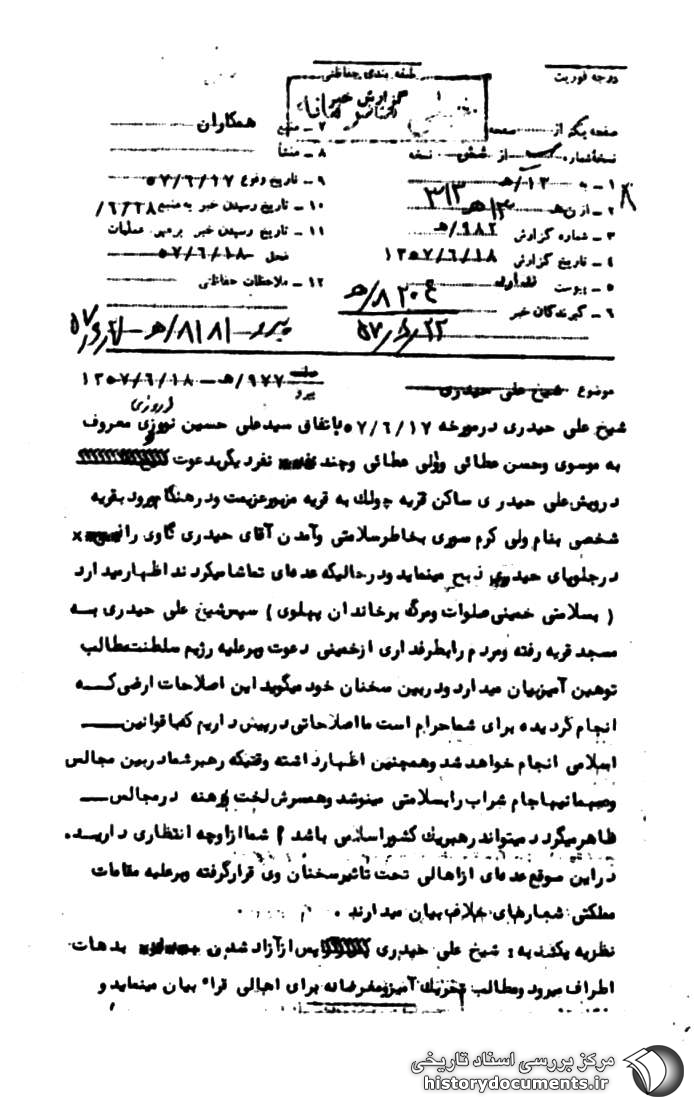 درجه فوریت
طبقه بندی حفاظتی
گزارش خبر
صفحه یک از صفحه
نسخه شماره از شش نسخه
۱ – به ۱۲/ه‍
۲ – از ۳ه‍
۳ – شماره گزارش ۹۸۲/ه‍
۴ – تاریخ گزارش ۱۳۵۷/۶/۱۸
۵ – پیوست ندارد
۶ – گیرندگان خبر
۷ – منبع همکاران
۸ – منشأ
۹ – تاریخ وقوع ۵۷/۶/۱۷
۱۰ – تاریخ رسیدن خبر به منبع
۱۱ – تاریخ رسیدن خبر برهبر عملیات
محل ۵۷/۶/۱۸
۱۲ – ملاحظات حفاظتی
۸۲۰۴/ه‍
۵۷/۸/۲۲
پیرو ۸۱۸۱/ه‍
موضوع شیخ علی حیدری
پیرو ۹۷۷/ه‍ – ۱۳۵۷/۶/۱۸
شیخ علی حیدری در مورخه ۵۷/۶/۱۷ باتفاق سید علی حسین نوروزی معروف
به موسوی وحسن عطائی وولی عطائی وچند نفر دیگر بدعوت
درویش علی حیدری ساکن قریه چولك به قریه مزبور عزیمت ودر هنگام ورود بقریه
شخصی بنام ولی کرم سوری بخاطر سلامتی وآمدن آقای حیدری گاوی را
در جلوپای حیدری ذبح مینماید ودر حالیکه عده‌ای تماشا میکردند اظهار میدارد
( بسلامتی خمینی صلوات ومرگ برخاندان پهلوی ) سپس شیخ علی حیدری بــه
مسجد قریه رفته ومردم رابطرفداری ازخمینی دعوت وبرعلیه رژیم سلطنت مطالب
توهین آمیز بیان میدارد ودر بین سخنان خود میگوید این اصلاحات ارضی کــه
انجام گردیده برای شما حرام است ما اصلاحاتی در پیش داریم که با قوانین
اسلامی انجام خواهد شد وهمچنین اظهار داشته وقتیکه رهبر شما در بین مجالس
ومیهمانیها جام شراب را بسلامتی مینوشد وهمسرش لخت وبرهنه در مجالس
ظاهر میگردد میتواند رهبر یك کشور اسلامی باشد ؟ شما از او چه انتظاری دارید.
در این موقع عده‌ای از اهالی تحت تاثیر سخنان وی قرار گرفته وبرعلیه مقامات
مملکتی شعارهای خلاف بیان میدارند .
نظریه یکشنبه : شیخ علی حیدری پس از آزاد شدن بدهات
اطراف میرود ومطالب تحریك آمیز ومغرضانه برای اهالی قراء بیان مینماید و
مرکز بررسی اسناد تاریخی
historydocuments.ir